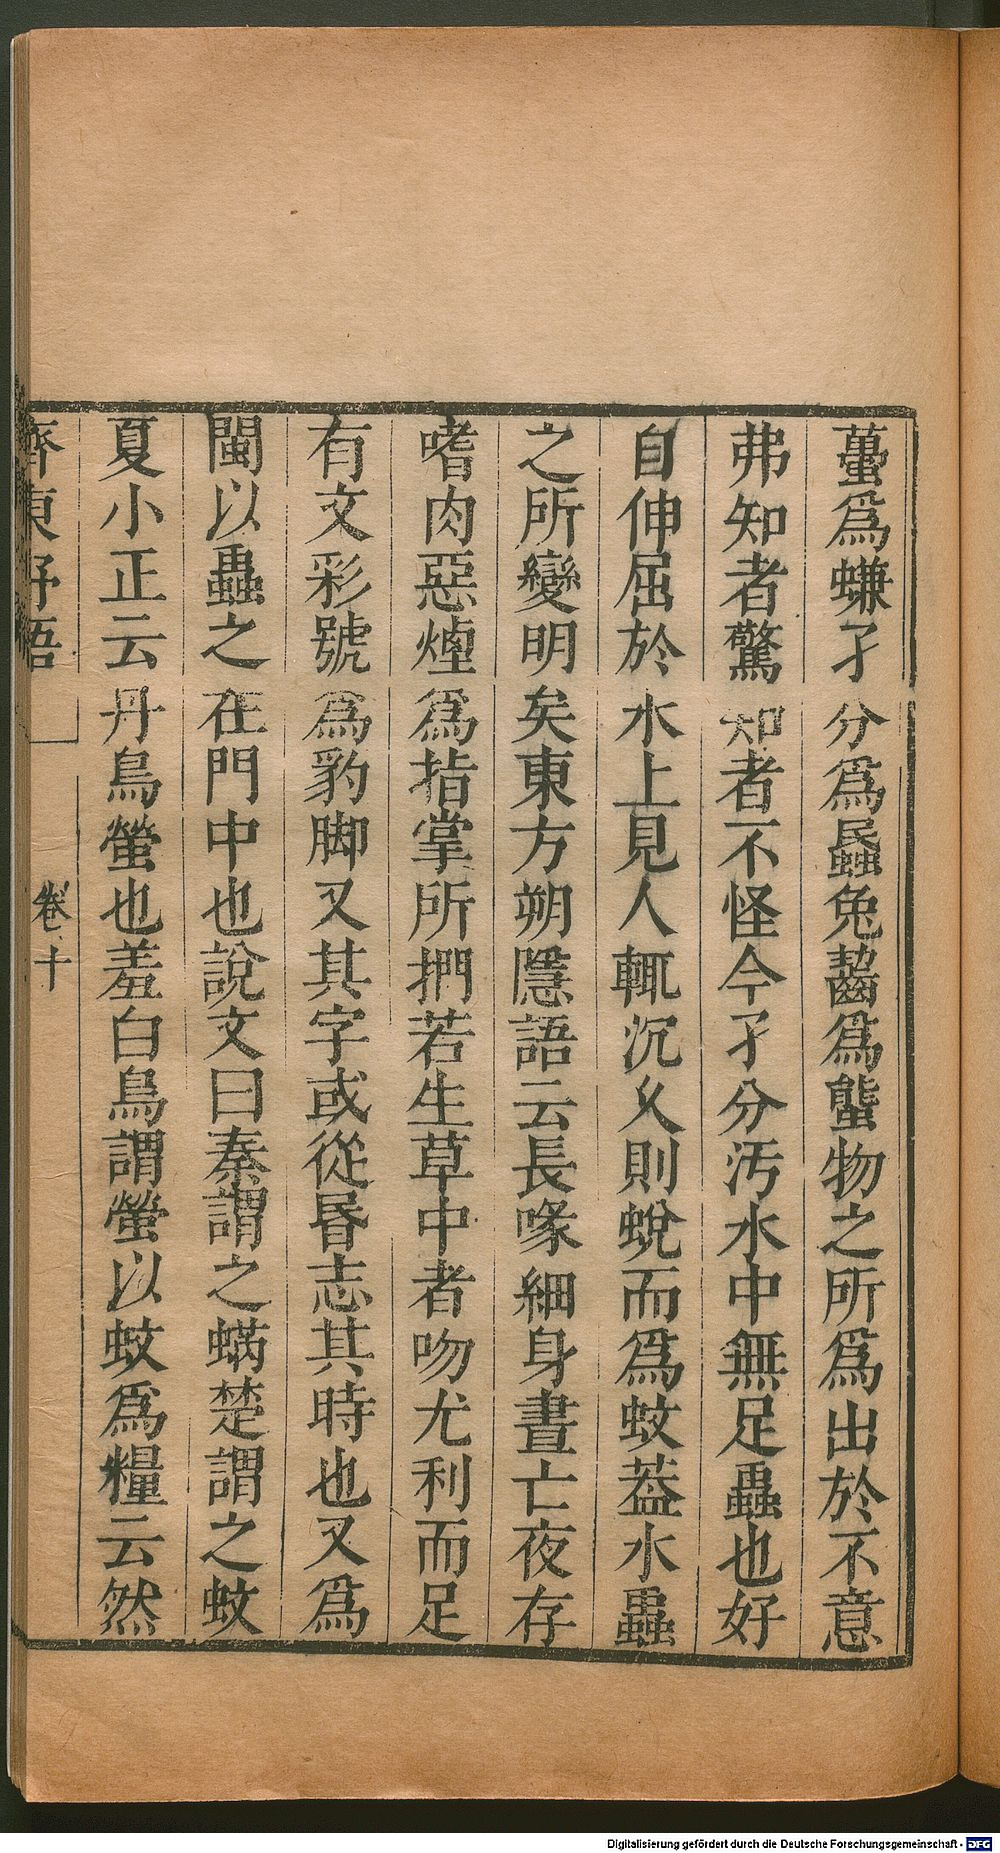 蠆爲蠊孑分爲蟁兔齧爲螚物之所爲出於不意
弗知者驚知者不怪今孑分汚水中無足蟲也好
自伸屈於水上見人輒沉久則蛻而爲蚊葢水蟲
之所變明矣東方朔隱語云長喙細身晝亡夜存
嗜肉惡煙爲指掌所捫若生草中者吻尤利而足
有文彩號爲豹脚又其字或從昬志其時也又爲
閩以蟲之在門中也說文曰秦謂之蜹楚謂之蚊
夏小正云丹鳥螢也羞白鳥謂螢以蚊爲糧云然
齊東野語
卷十
Digitalisierung gefördert durch die Deutsche Forschungsgemeinschaft - DFG